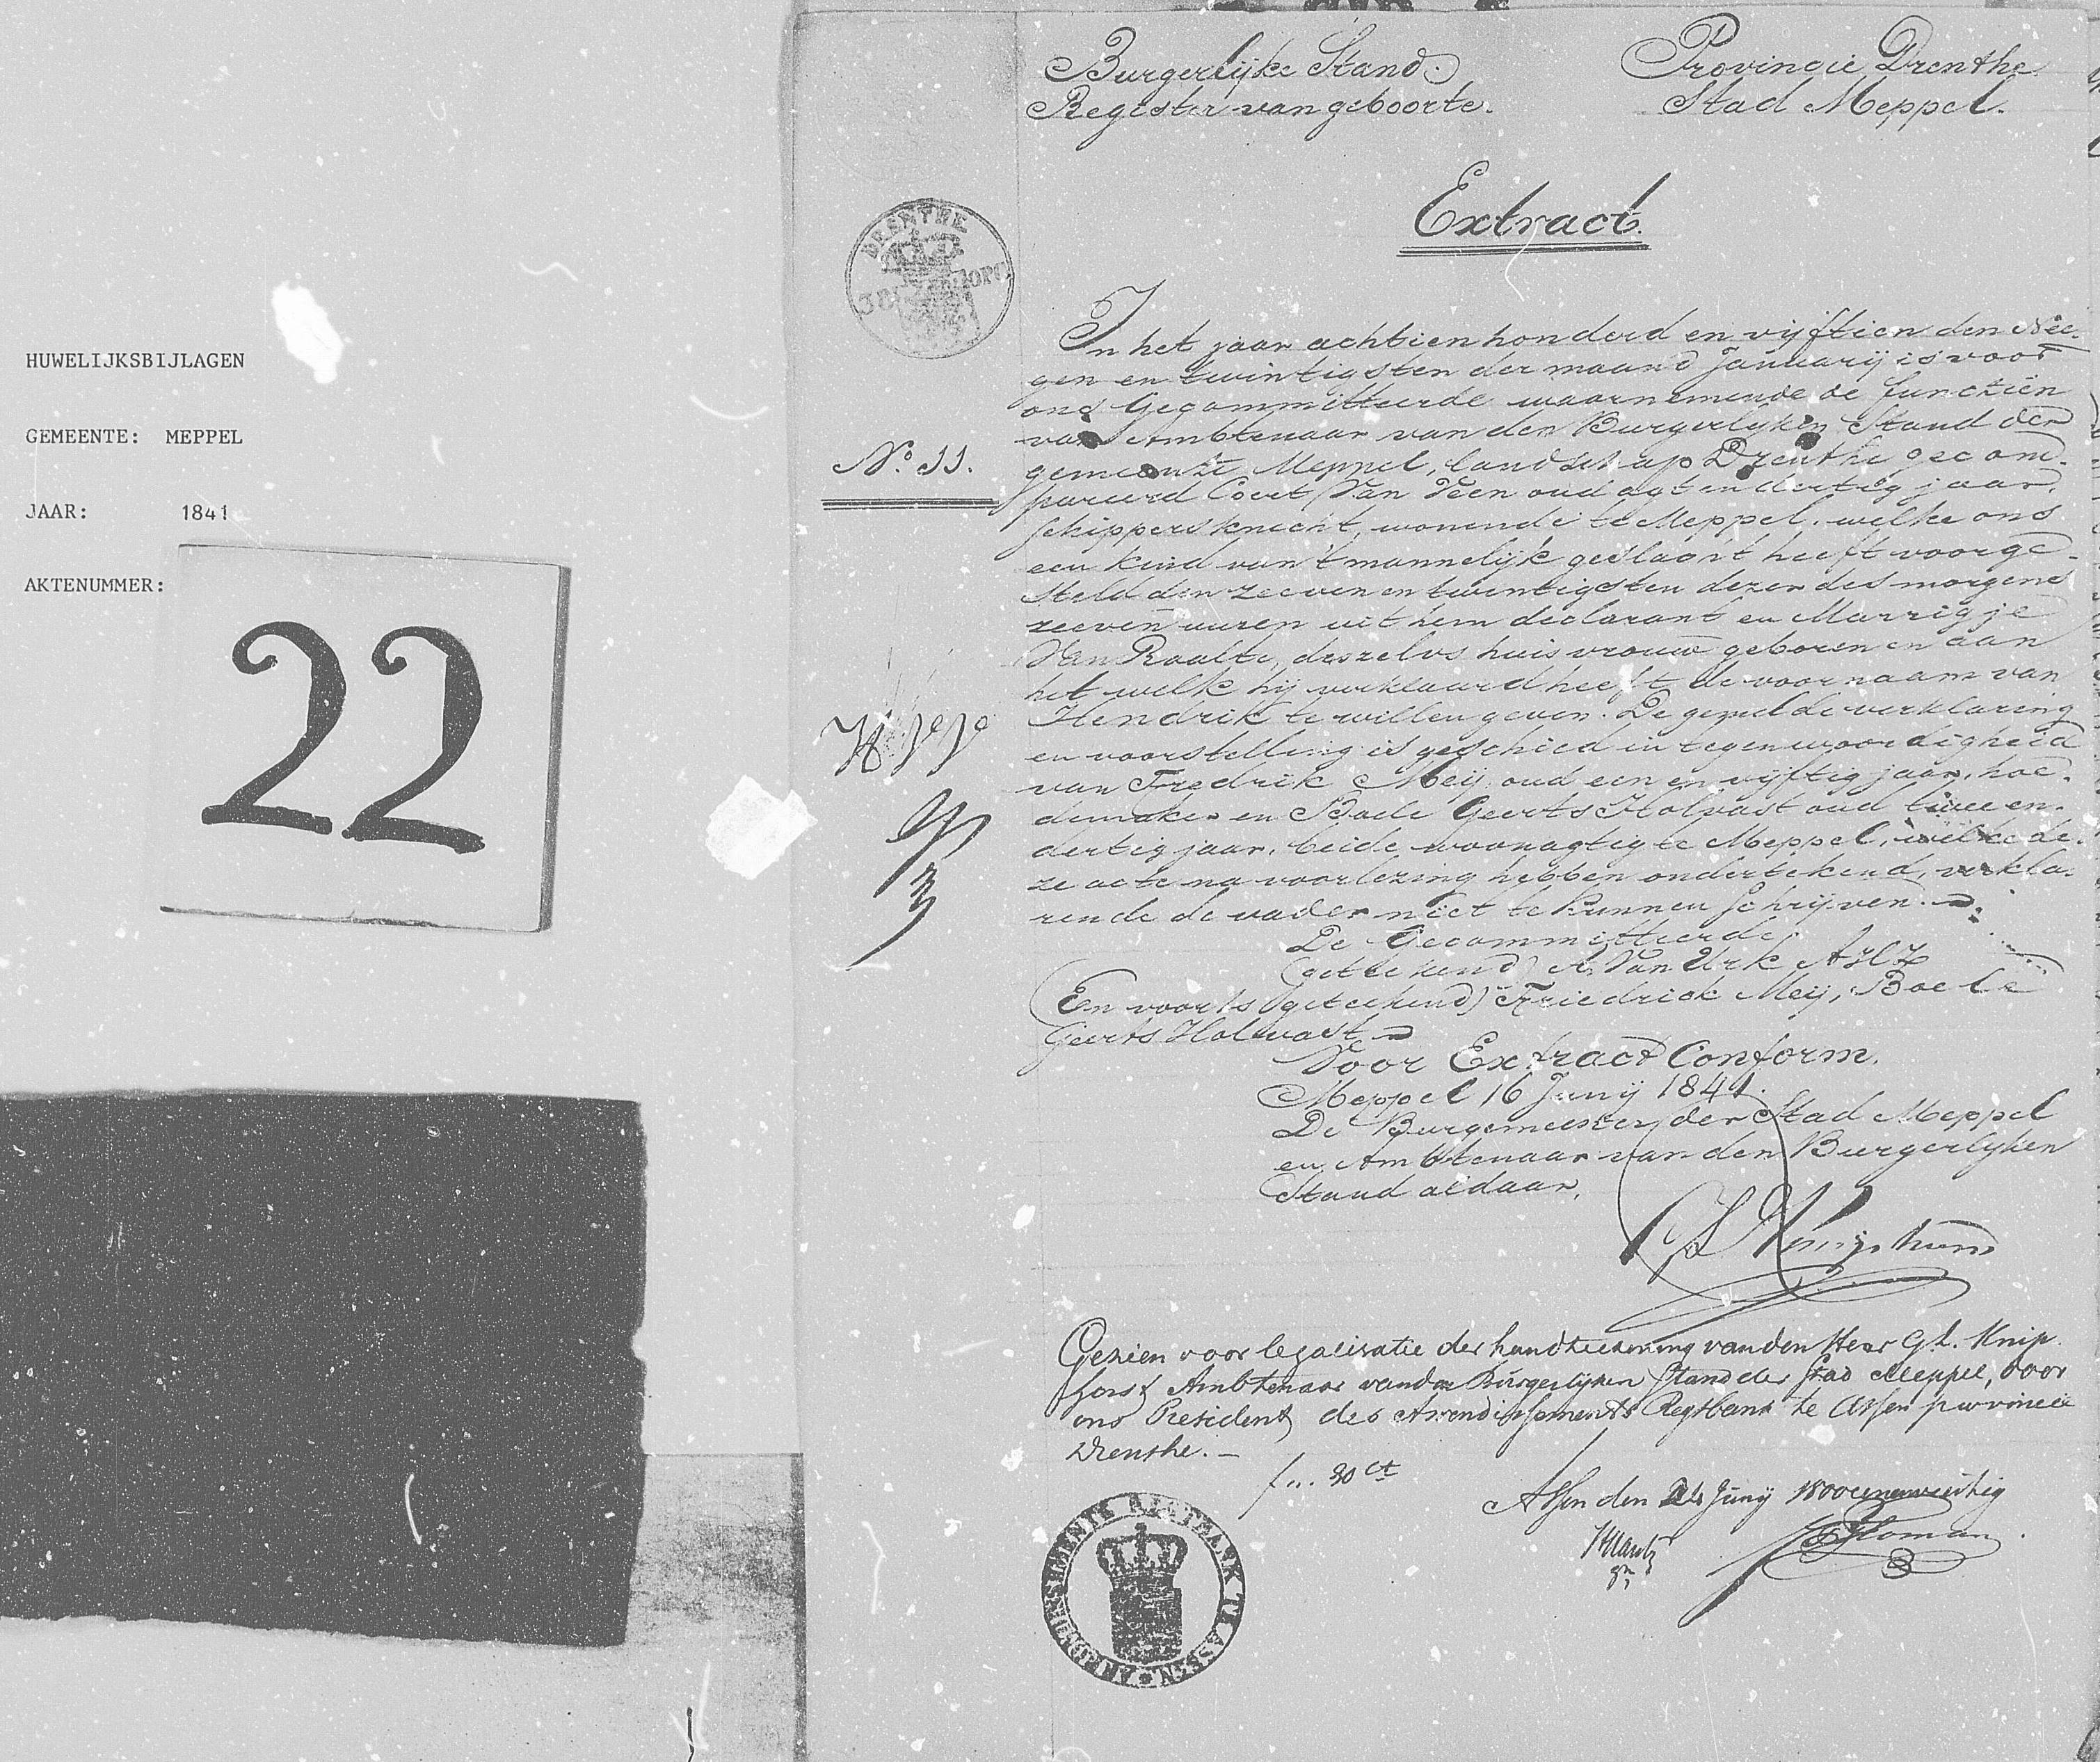 HUWELIJKSBIJLAGEN
GEMEENTE: MEPPEL
JAAR: 1841
AKTENUMMER:
22
Burgerlijke Stand.
Register van geboorte.
Provincie Drenthe
Stad Meppel.
Extract.
DRENTHE
No. 11.
In het jaar achtienhonderd en vijftien den Nee-
gen en twintigsten der maand Januarij is voor
ons Gecommitteerde waarnemende de functien
van Ambtenaar van den Burgerlyken Stand der
gemeente Meppel, landschap Drenthe gecom-
pareerd Coert Van Veen oud agt en dertig jaar,
schippersknecht, wonende te Meppel, welke ons
een kind van 't mannelijk geslacht heeft voorge-
steld den zeeven en twintigsten dezer des morgens
zeeven uuren uit hem declarant en Marrigje
Van Raalte, deszelvs huisvrouw geboren en aan
het welk hij verklaard heeft de voornaam van
Hendrik te willen geven. De gemelde verklaring
en voorstelling is geschied in tegenwoordigheid
van Fredrik Meij oud een en vijftig jaar, hoe-
demaker en Boele Geerts Holvast oud twee en
dertig jaar, beide woonagtig te Meppel, welke de-
ze acte na voorlezing hebben ondertekend, verkla-
rende de vader niet te kunnen schrijven.
De Gecommitteerde
(geteekend) A. Van Urk AHZ
(En voorts geteekend) Friedrick Meij, Boele
Geerts Holwast
Voor Extract Conform.
Meppel 16 Junij 1841.
De Burgemeester der Stad Meppel
en Ambtenaar van den Burgerlyken
Stand aldaar,
Gezien voor legalisatie der handteekening van den Heer G. L. Knip
horst Ambtenaar van den Burgerlijken Stand der Stad Meppel, door
ons President des Arrondissements Regtbank te Assen provincie
Drenthe. —
f „. 30 ct
Assen den 24 Junij 1800 eenenveertig
Homan
ARRONDISSEMENTS REGTBANK TE ASSEN